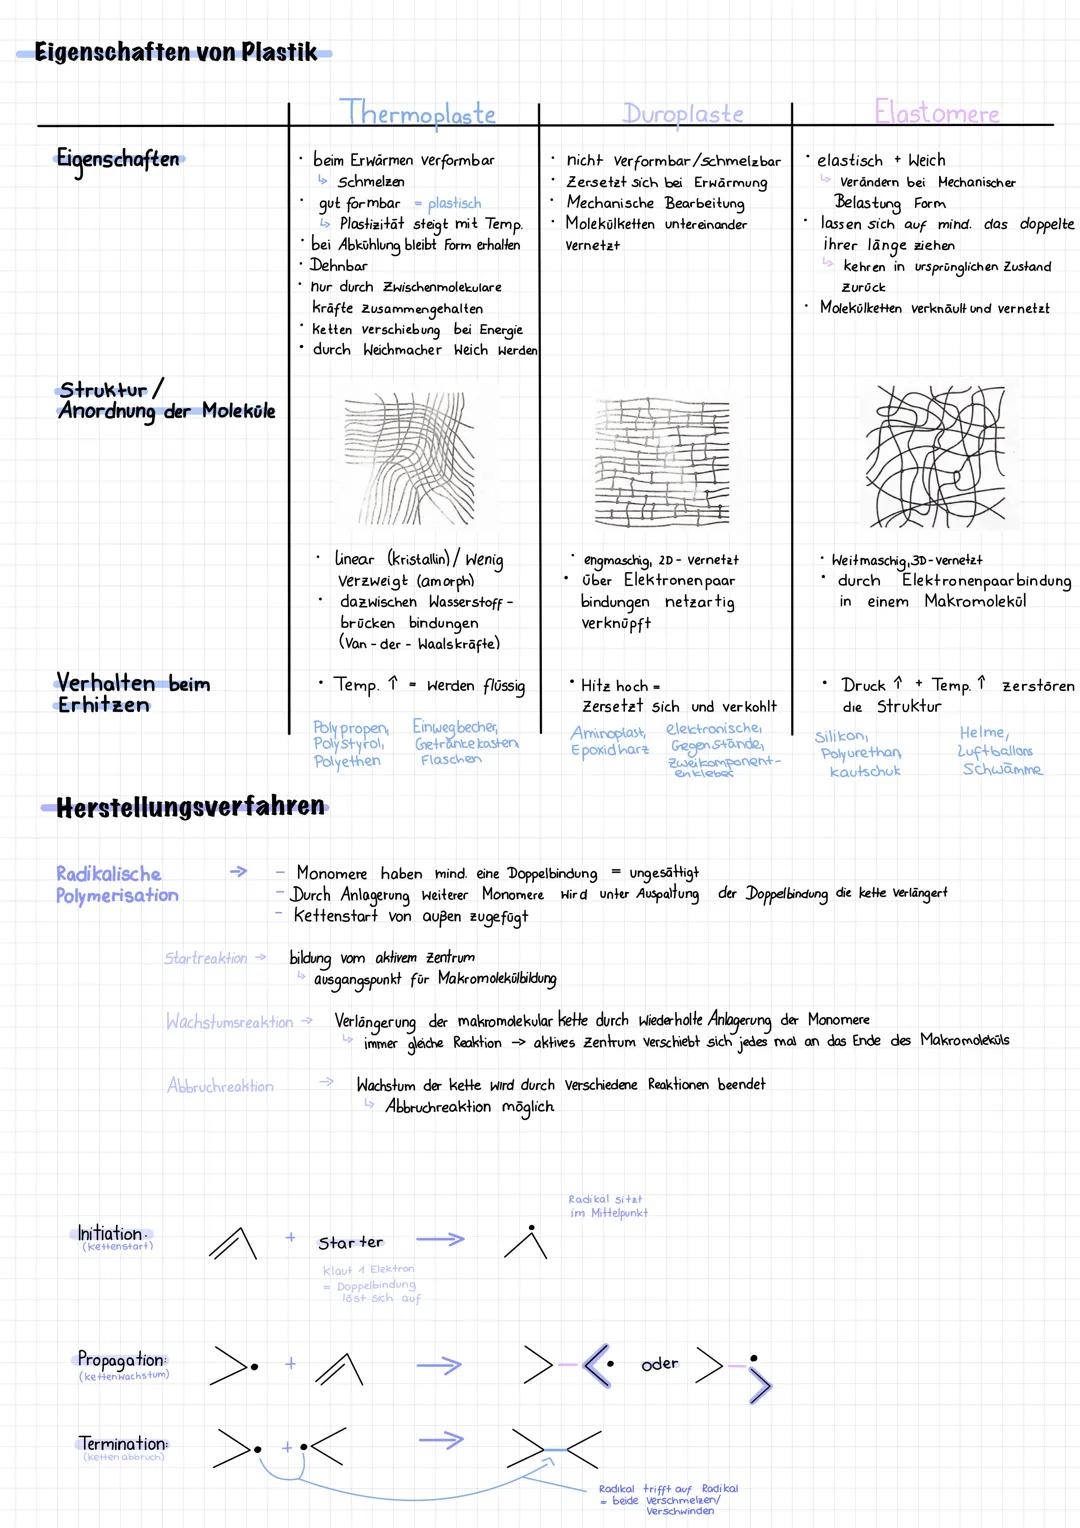 Eigenschaften von Plastik
Thermoplaste
Duroplaste
Elastomere
Eigenschaften
• beim Erwärmen verformbar
↳ Schmelzen
• gut formbar = plastisch
↳ Plastizität steigt mit Temp.
• bei Abkühlung bleibt Form erhalten
• Dehnbar
• nur durch Zwischenmolekulare
kräfte zusammengehalten
• ketten verschiebung bei Energie
• durch Weichmacher Weich werden
• nicht verformbar/schmelzbar
• Zersetzt sich bei Erwärmung
• Mechanische Bearbeitung
• Molekülketten untereinander
vernetzt
• elastisch + Weich
↳ Verändern bei Mechanischer
Belastung Form
• lassen sich auf mind. das doppelte
ihrer länge ziehen
↳ kehren in ursprünglichen Zustand
zurück
• Molekülketten verknäult und vernetzt
Struktur /
Anordnung der Moleküle
• linear (kristallin) / Wenig
verzweigt (amorph)
• dazwischen Wasserstoff-
brücken bindungen
(Van - der - Waalskräfte)
• engmaschig, 2D - vernetzt
• über Elektronenpaar
bindungen netzartig
verknüpft
• Weitmaschig, 3D-vernetzt
• durch Elektronenpaarbindung
in einem Makromolekül
Verhalten beim
Erhitzen
• Temp. ↑ = werden flüssig
• Hitz hoch =
Zersetzt sich und verkohlt
• Druck ↑ + Temp. ↑ zerstören
die Struktur
Polypropen,
Polystyrol,
Polyethen
Einwegbecher,
Getränkekasten,
Flaschen
Aminoplast,
Epoxidharz
elektronische,
Gegenstände,
Zweikomponent-
enkleber
Silikon,
Polyurethan,
kautschuk
Helme,
Luftballons
Schwämme
Herstellungsverfahren
Radikalische
Polymerisation
→ - Monomere haben mind. eine Doppelbindung = ungesättigt
- Durch Anlagerung weiterer Monomere wird unter Auspaltung der Doppelbindung die kette verlängert
- Kettenstart von außen zugefügt
Startreaktion → bildung vom aktivem Zentrum
↳ ausgangspunkt für Makromolekülbildung
Wachstumsreaktion → Verlängerung der makromolekular kette durch wiederholte Anlagerung der Monomere
↳ immer gleiche Reaktion → aktives Zentrum verschiebt sich jedes mal an das Ende des Makromoleküls
Abbruchreaktion → Wachstum der kette wird durch verschiedene Reaktionen beendet
↳ Abbruchreaktion möglich
Radikal sitzt
im Mittelpunkt
Initiation:
(Kettenstart)
+ Starter →
klaut 1 Elektron
= Doppelbindung
löst sich auf
Propagation:
(kettenwachstum)
+ → oder
Termination:
(ketten abbruch)
+ →
Radikal trifft auf Radikal
= beide verschmelzen/
verschwinden